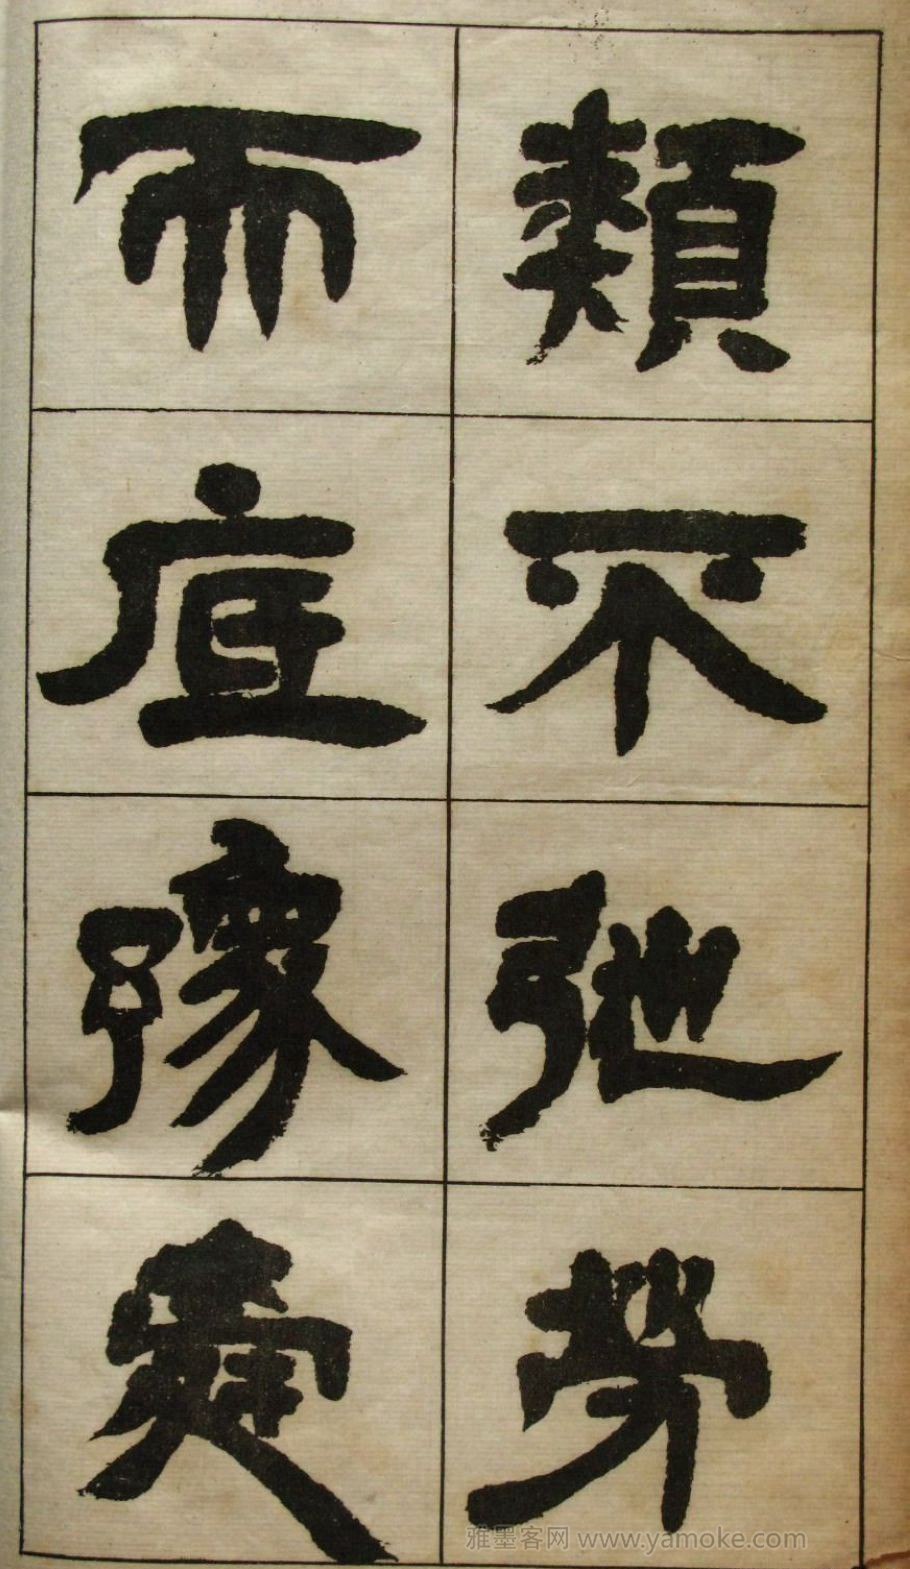 類不弛勞
而底豫舜
雅墨客网 www.yamoke.com